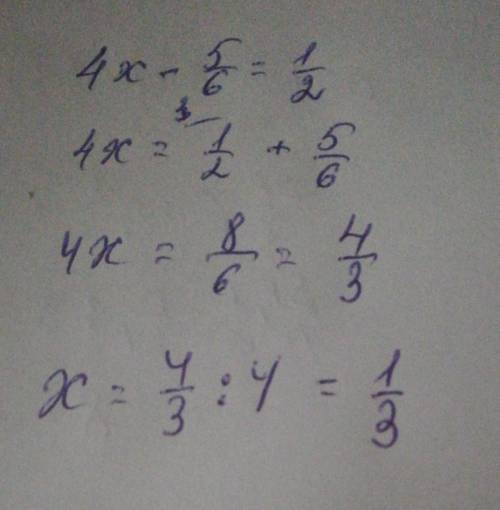 4x - 5/6 = 1/2
4x = 3 1/2 + 5/6
4x = 8/6 = 4/3
x = 4/3 : 4 = 1/3